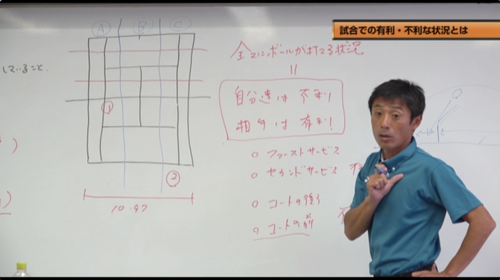 試合での有利・不利な状況とは
していること
A B C
全てにボールが打てる状況
||
自分達は 不利!
相手は 有利!
①
②
10.97
○ ファーストサービス
○ セカンドサービス
○ コートの後ろ
○ コートの前